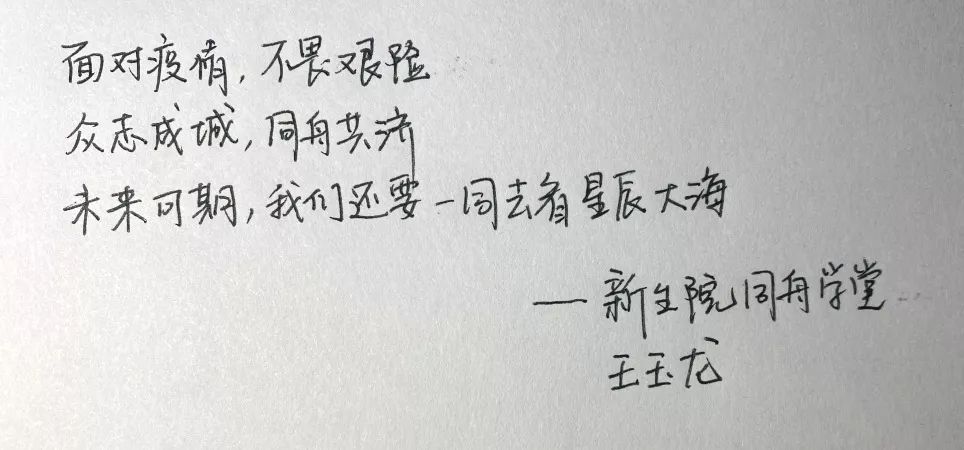 面对疫情,不畏艰险
众志成城,同舟共济
未来可期,我们还要一同去看星辰大海
——新生院同舟学堂
王玉龙